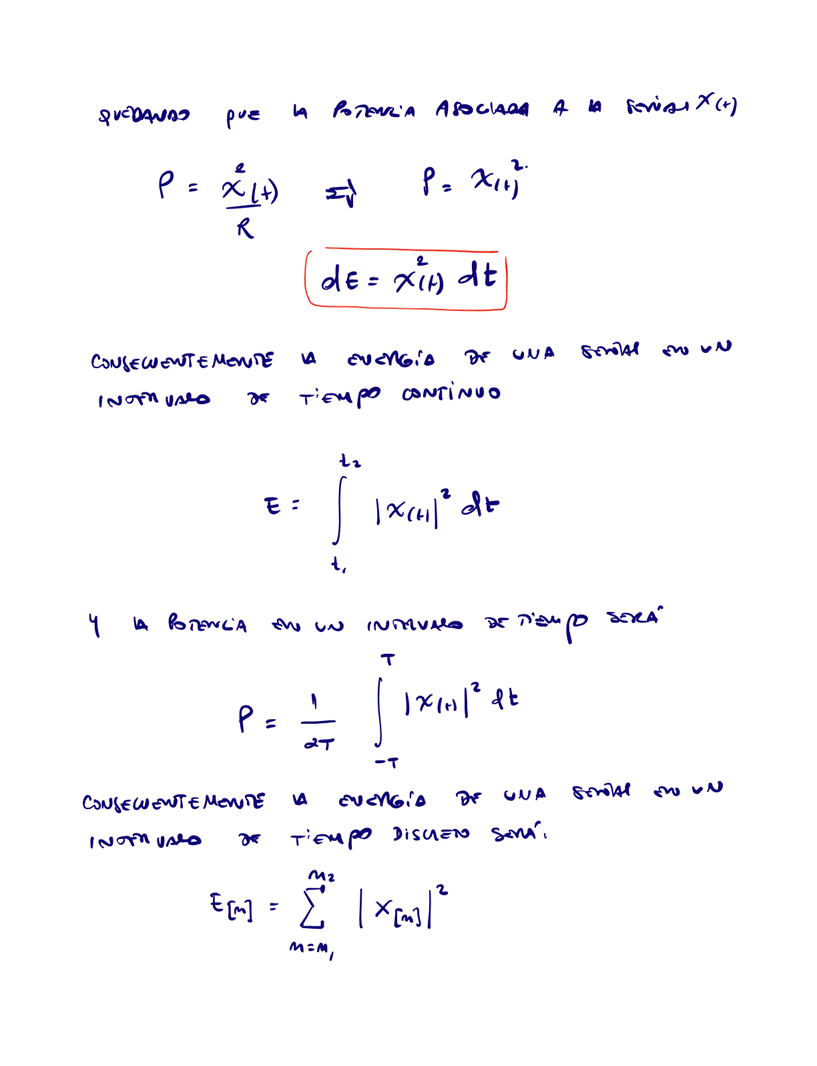 QUEDANDO QUE LA POTENCIA ASOCIADA A LA SEÑAL X(t)
P = x²(t)/R ⇒ P = x(t)².
dE = x²(t) dt
CONSECUENTEMENTE LA ENERGÍA DE UNA SEÑAL EN UN
INTERVALO DE TIEMPO CONTINUO
E = ∫_{t₁}^{t₂} |x(t)|² dt
Y LA POTENCIA EN UN INTERVALO DE TIEMPO SERÁ
P = 1/2T ∫_{-T}^{T} |x(t)|² dt
CONSECUENTEMENTE LA ENERGÍA DE UNA SEÑAL EN UN
INTERVALO DE TIEMPO DISCRETO SERÁ.
E[n] = ∑_{n=n₁}^{n₂} |x[n]|²